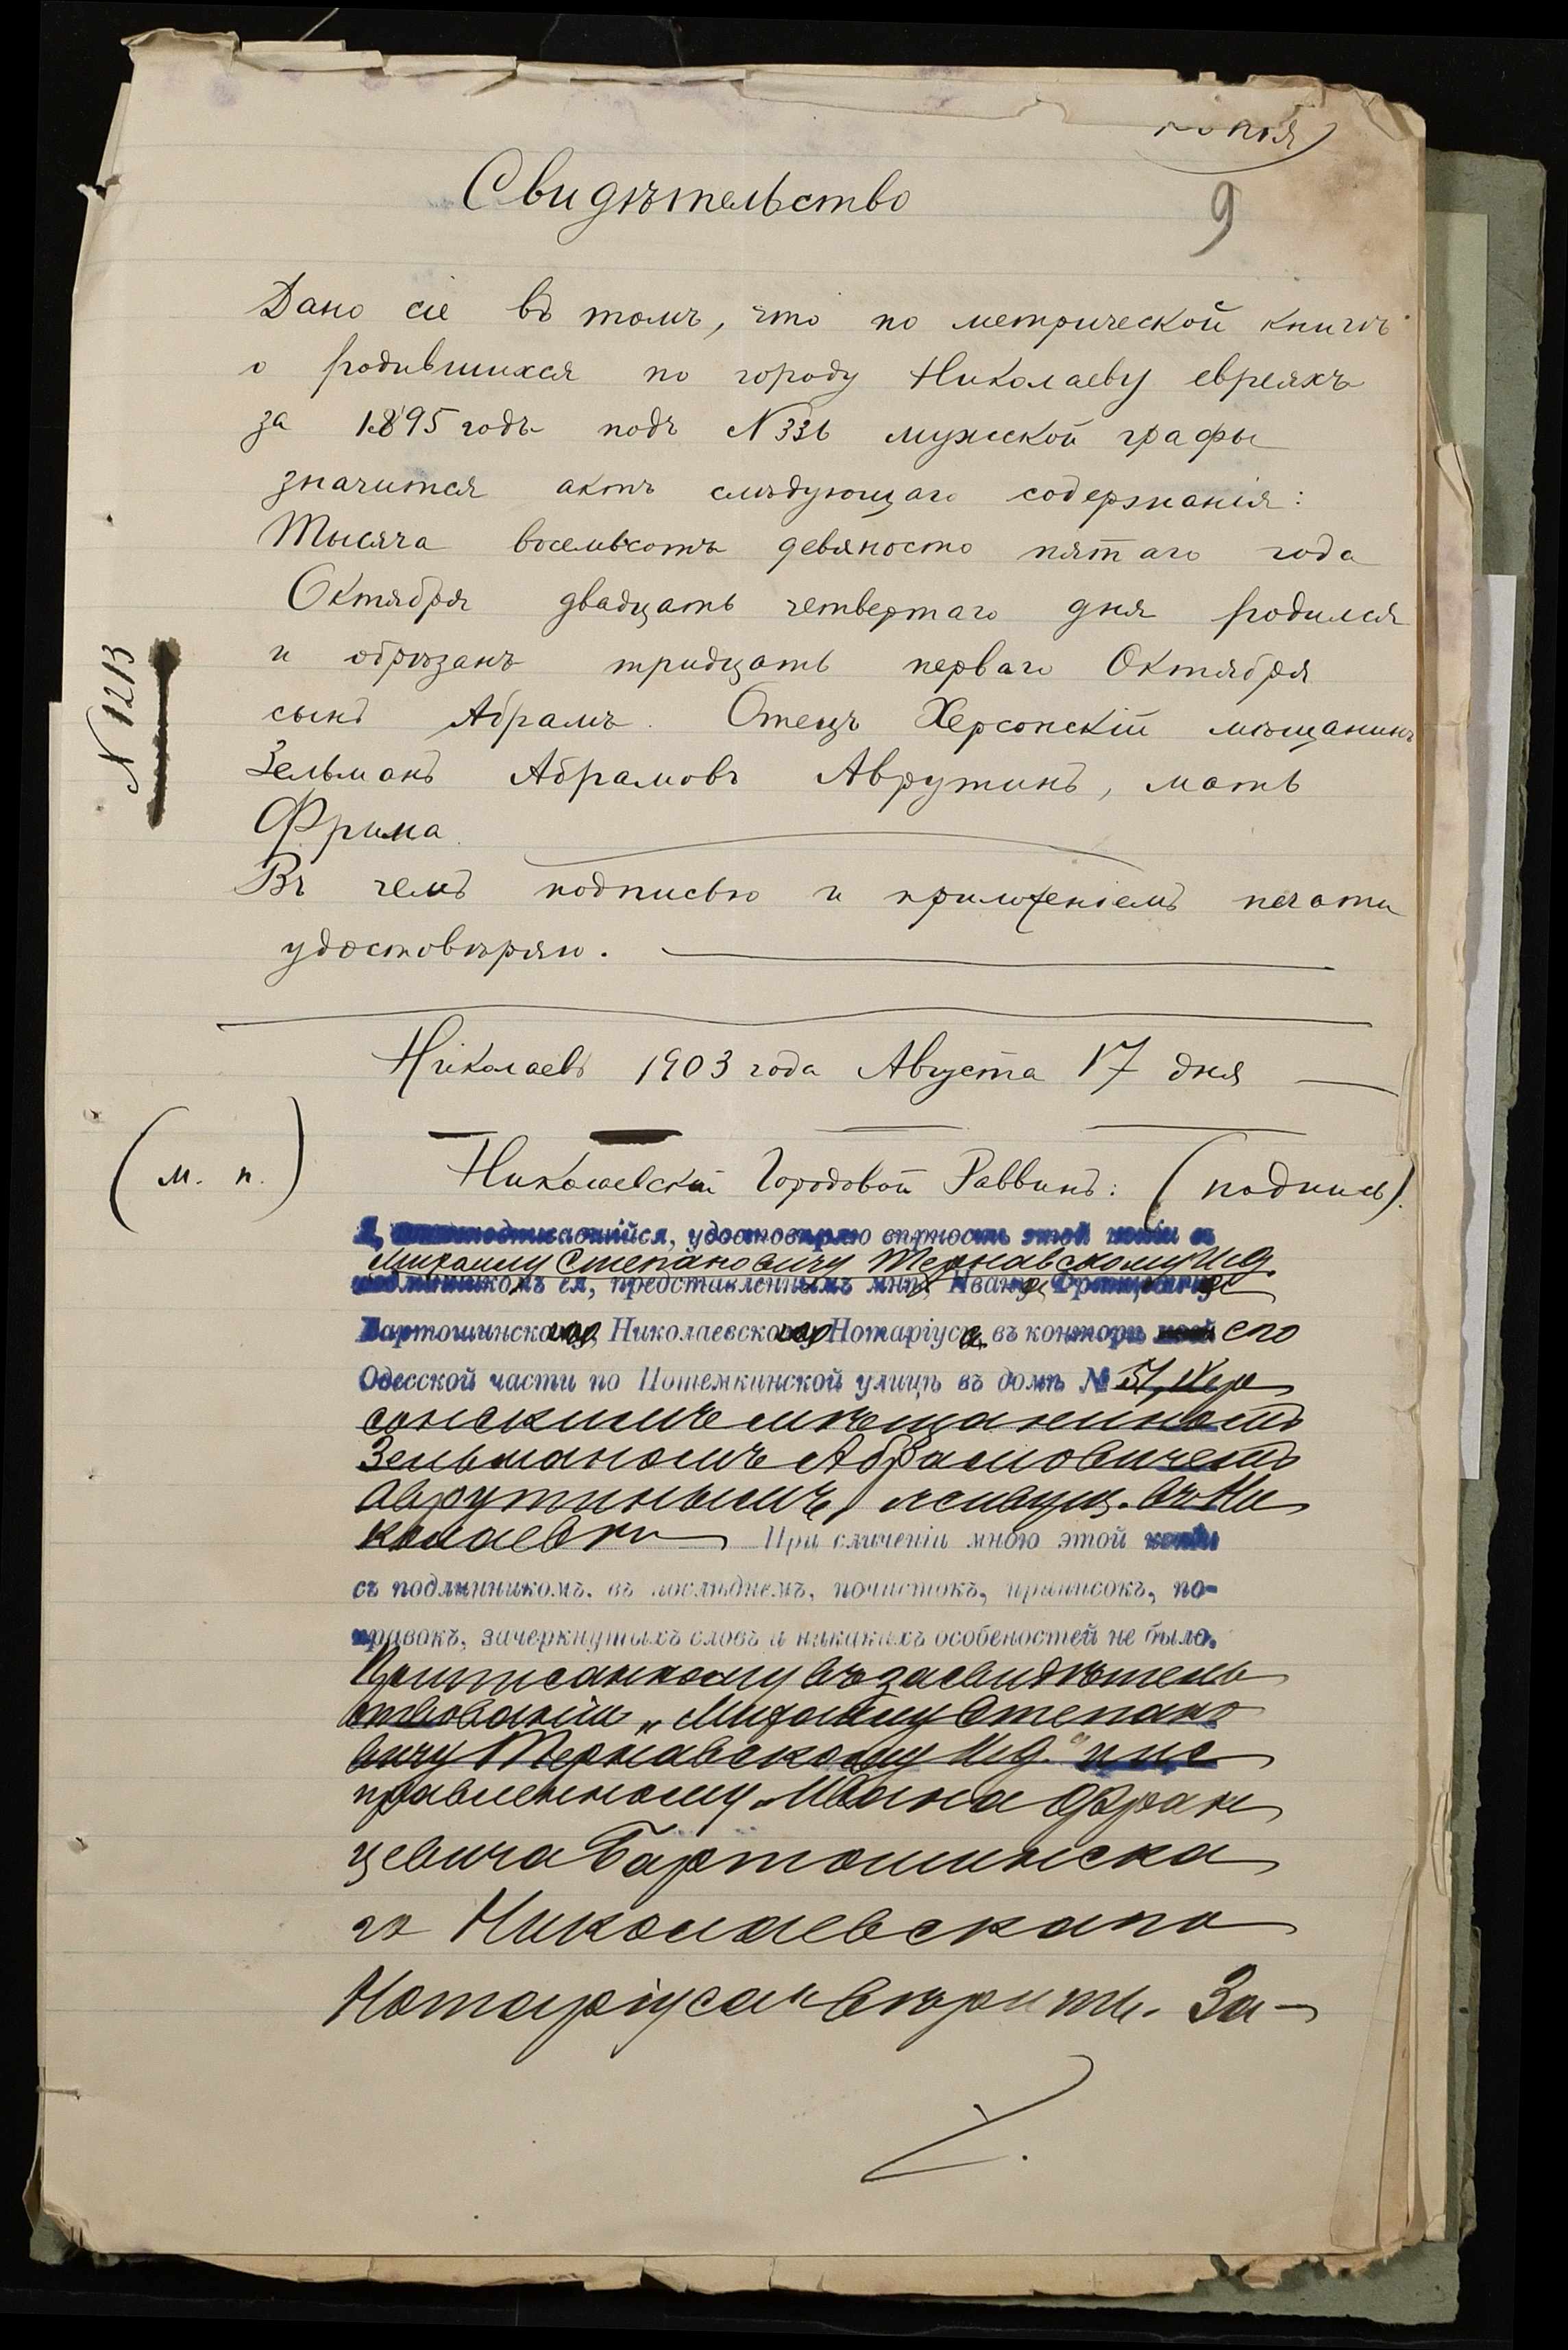 копія
9
Свидѣтельство
Дано сіе въ томъ, что по метрической книгѣ
о родившихся по городу Николаеву евреяхъ
за 1895 годъ подъ N 336 мужской графы
значится актъ слѣдующаго содержанія:
Тысяча восемьсотъ девяносто пятаго года
Октября двадцать четвертаго дня родился
и обрѣзанъ тридцать перваго Октября
сынъ Абрамъ. Отецъ Херсонскій мѣщанинъ
Зельманъ Абрамовъ Аврутинъ, мать
Фрима.
Въ чемъ подписью и приложеніемъ печати
удостовѣряю.
N 1213
Николаевъ 1903 года Августа 17 дня
(м. п.)
Николаевскій Городовой Раввинъ: (подпись).
Я, нижеподписавшійся, удостовѣряю вѣрность этой копіи съ
Михаилу Степановичу Тернавскому И.д.
подлинникомъ ея, представленнымъ мнѣ, Ивану Францевичу
Бартошинскому, Николаевскому Нотаріуса, въ конторѣ его
Одесской части по Потемкинской улицѣ въ домѣ № 51, Хер
сонскимъ мѣщаниномъ
Зельманомъ Абрамовичемъ
Аврутинымъ, живущ. въ Ни
колаевѣ При сличеніи мною этой копіи
съ подлинникомъ, въ послѣднемъ, почистокъ, приписокъ, по-
правокъ, зачеркнутыхъ словъ и никакихъ особеностей не было.
Приписанному въ засвидѣтель
ствованіи „Михаилу Степано
вичу Тернавскому И.д." и ис
правленному „Ивана Фран
цевича Бартошинска
го Николаевскаго
Нотаріуса" вѣрить. За-